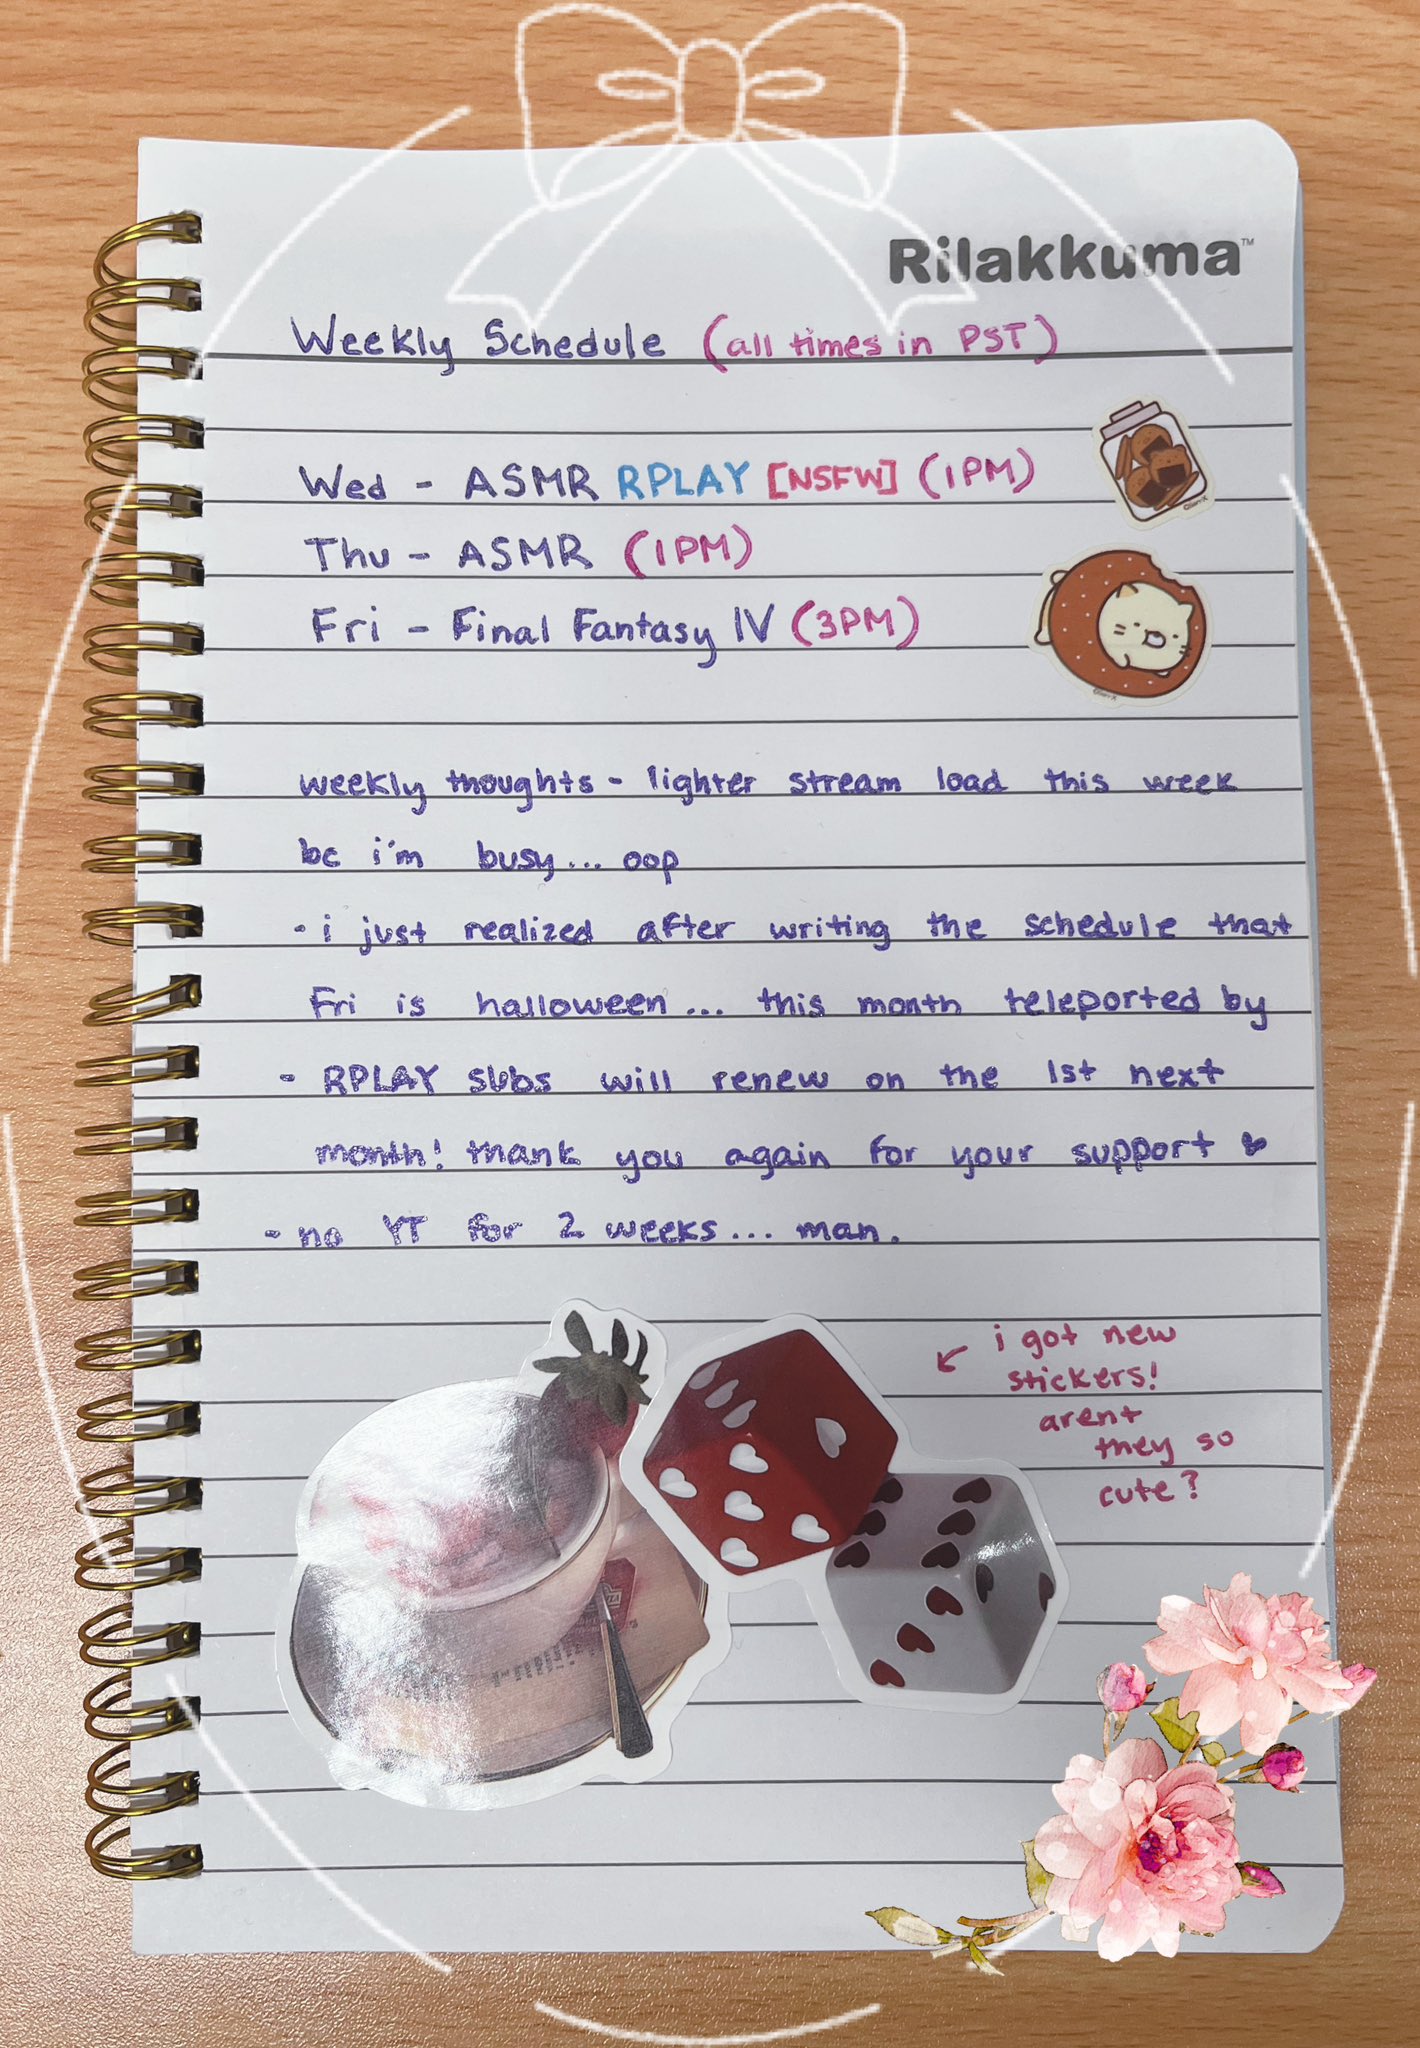 Rilakkuma™
Weekly Schedule (all times in PST)
Wed - ASMR RPLAY [NSFW] (1PM)
Thu - ASMR (1PM)
Fri - Final Fantasy IV (3PM)
weekly thoughts - lighter stream load this week
bc i'm busy... oop
- i just realized after writing the schedule that
Fri is halloween... this month teleported by
- RPLAY subs will renew on the 1st next
month! thank you again for your support ♥
- no YT for 2 weeks... man.
↙ i got new
stickers!
arent
they so
cute?